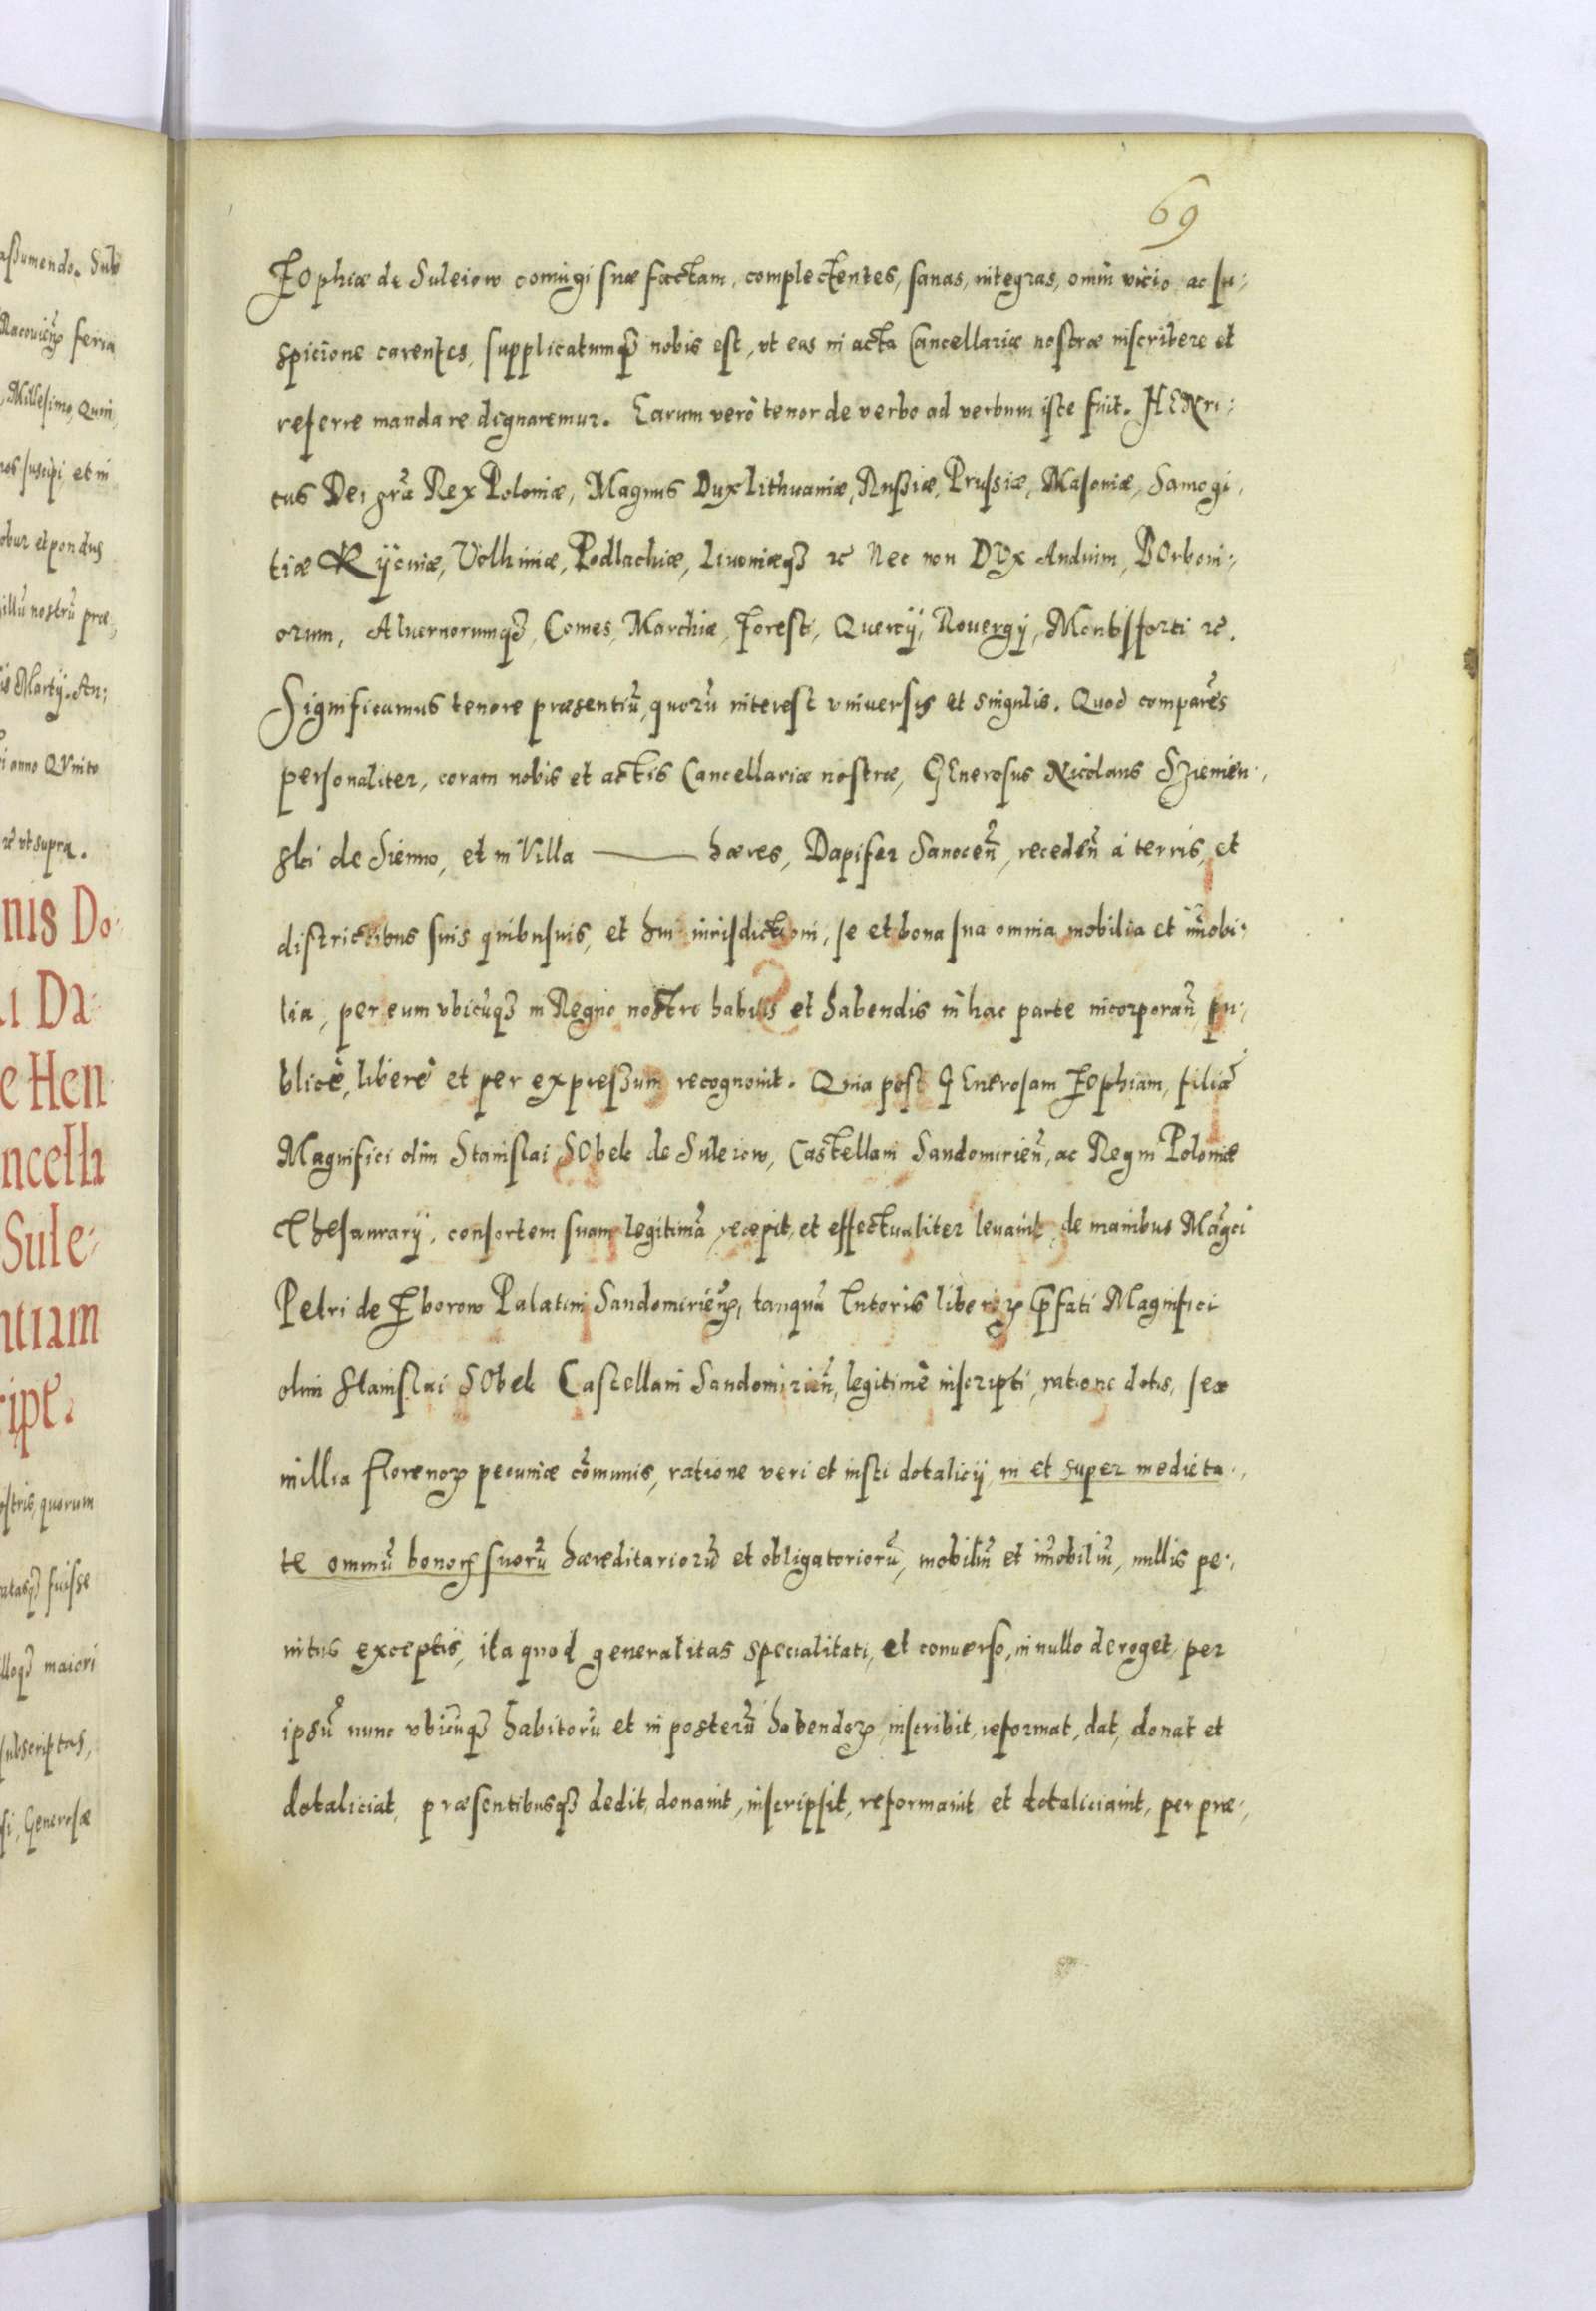 aßumendo. Sub
Racovieñ feria
Millesimo Quin
nos suscipi et in
obur et pondus
illũ nostrũ præ,
is Martij. An:
i anno QVinto
ꝛc ut supra.
nis Do:
i Da:
e Hen
ncella
Sule:
ntiam
ript.
ostris, quorum
atasq̃ fuisse
lloq̃ maiori
subscriptas,
si, Generosæ
69
ZOphiæ de Suleiow coniugi suæ factam, complectentes, sanas, integras, omni vicio ac su:
spicione carentes, supplicatumq̃ nobis est, vt eas in acta Cancellariæ nostræ inscribere et
referre mandare dignaremur. Earum verò tenor de verbo ad verbum iste fuit. HENri:
cus Dei grã Rex Poloniæ, Magnus Dux Lithuaniæ, Rußiæ, Prussiæ, Masoviæ, Samogi,
tiæ Kijoviæ, Volhiniæ, Podlachiæ, Livoniæq̃ ꝛc Nec non DVx Anduim, BOrboni:
orum, Alvernorumq̃, Comes, Marchiæ, Foresti, Quercij, Rouergij, Montisforti ꝛc.
Significamus tenore præsentiũ, quorũ interest vniversis et singulis. Quod comparẽs
personaliter, coram nobis et actis Cancellariæ nostræ, GEnerosus Nicolaus Sziemien.
ski de Sienno, et in Villa ——— hæres, Dapifer Sanoceñ, recedeñ à terris, et
districtibus suis quibusuis, et huic iurisdictioni, se et bona sua omnia mobilia et im̃obi:
lia, per eum vbicũq̃ in Regno nostro habitis et habendis in hac parte incorporañ pu:
blicè, liberè et per expreßum recognouit. Quia post GEnerosam ZOphiam, filiã
Magnifici olim Stanislai SObek de Suleiow, Castellani Sandomirieñ, ac Regni Poloniæ
Thesaurarij, consortem suam legitimã, recepit, et effectualiter levauit, de manibus Mãgci
Petri de Zborow Palatini Sandomirieñ, tanquã Tutoris liberoꝝ p̃fati Magnifici
olim Stanislai SObek Castellani Sandomirieñ, legitimè inscripti, ratione dotis, sex
millia florenoꝝ pecuniæ cõmunis, ratione veri et iusti dotalicij in et super medieta.,
te omniũ bonoꝝ suorũ hæreditariorũ et obligatoriorũ, mobiliũ et im̃obiliũ, nullis pe:,
nitus exceptis, ita quod generalitas specialitati, et converso, in nullo deroget, per
ipsũ nunc vbicũq̃ habitorũ et in posterũ habendoꝝ, inscribit, reformat, dat, donat et
dotaliciat, præsentibusq̃ dedit, donauit, inscripsit, reformauit et dotaliciauit, per præ:,